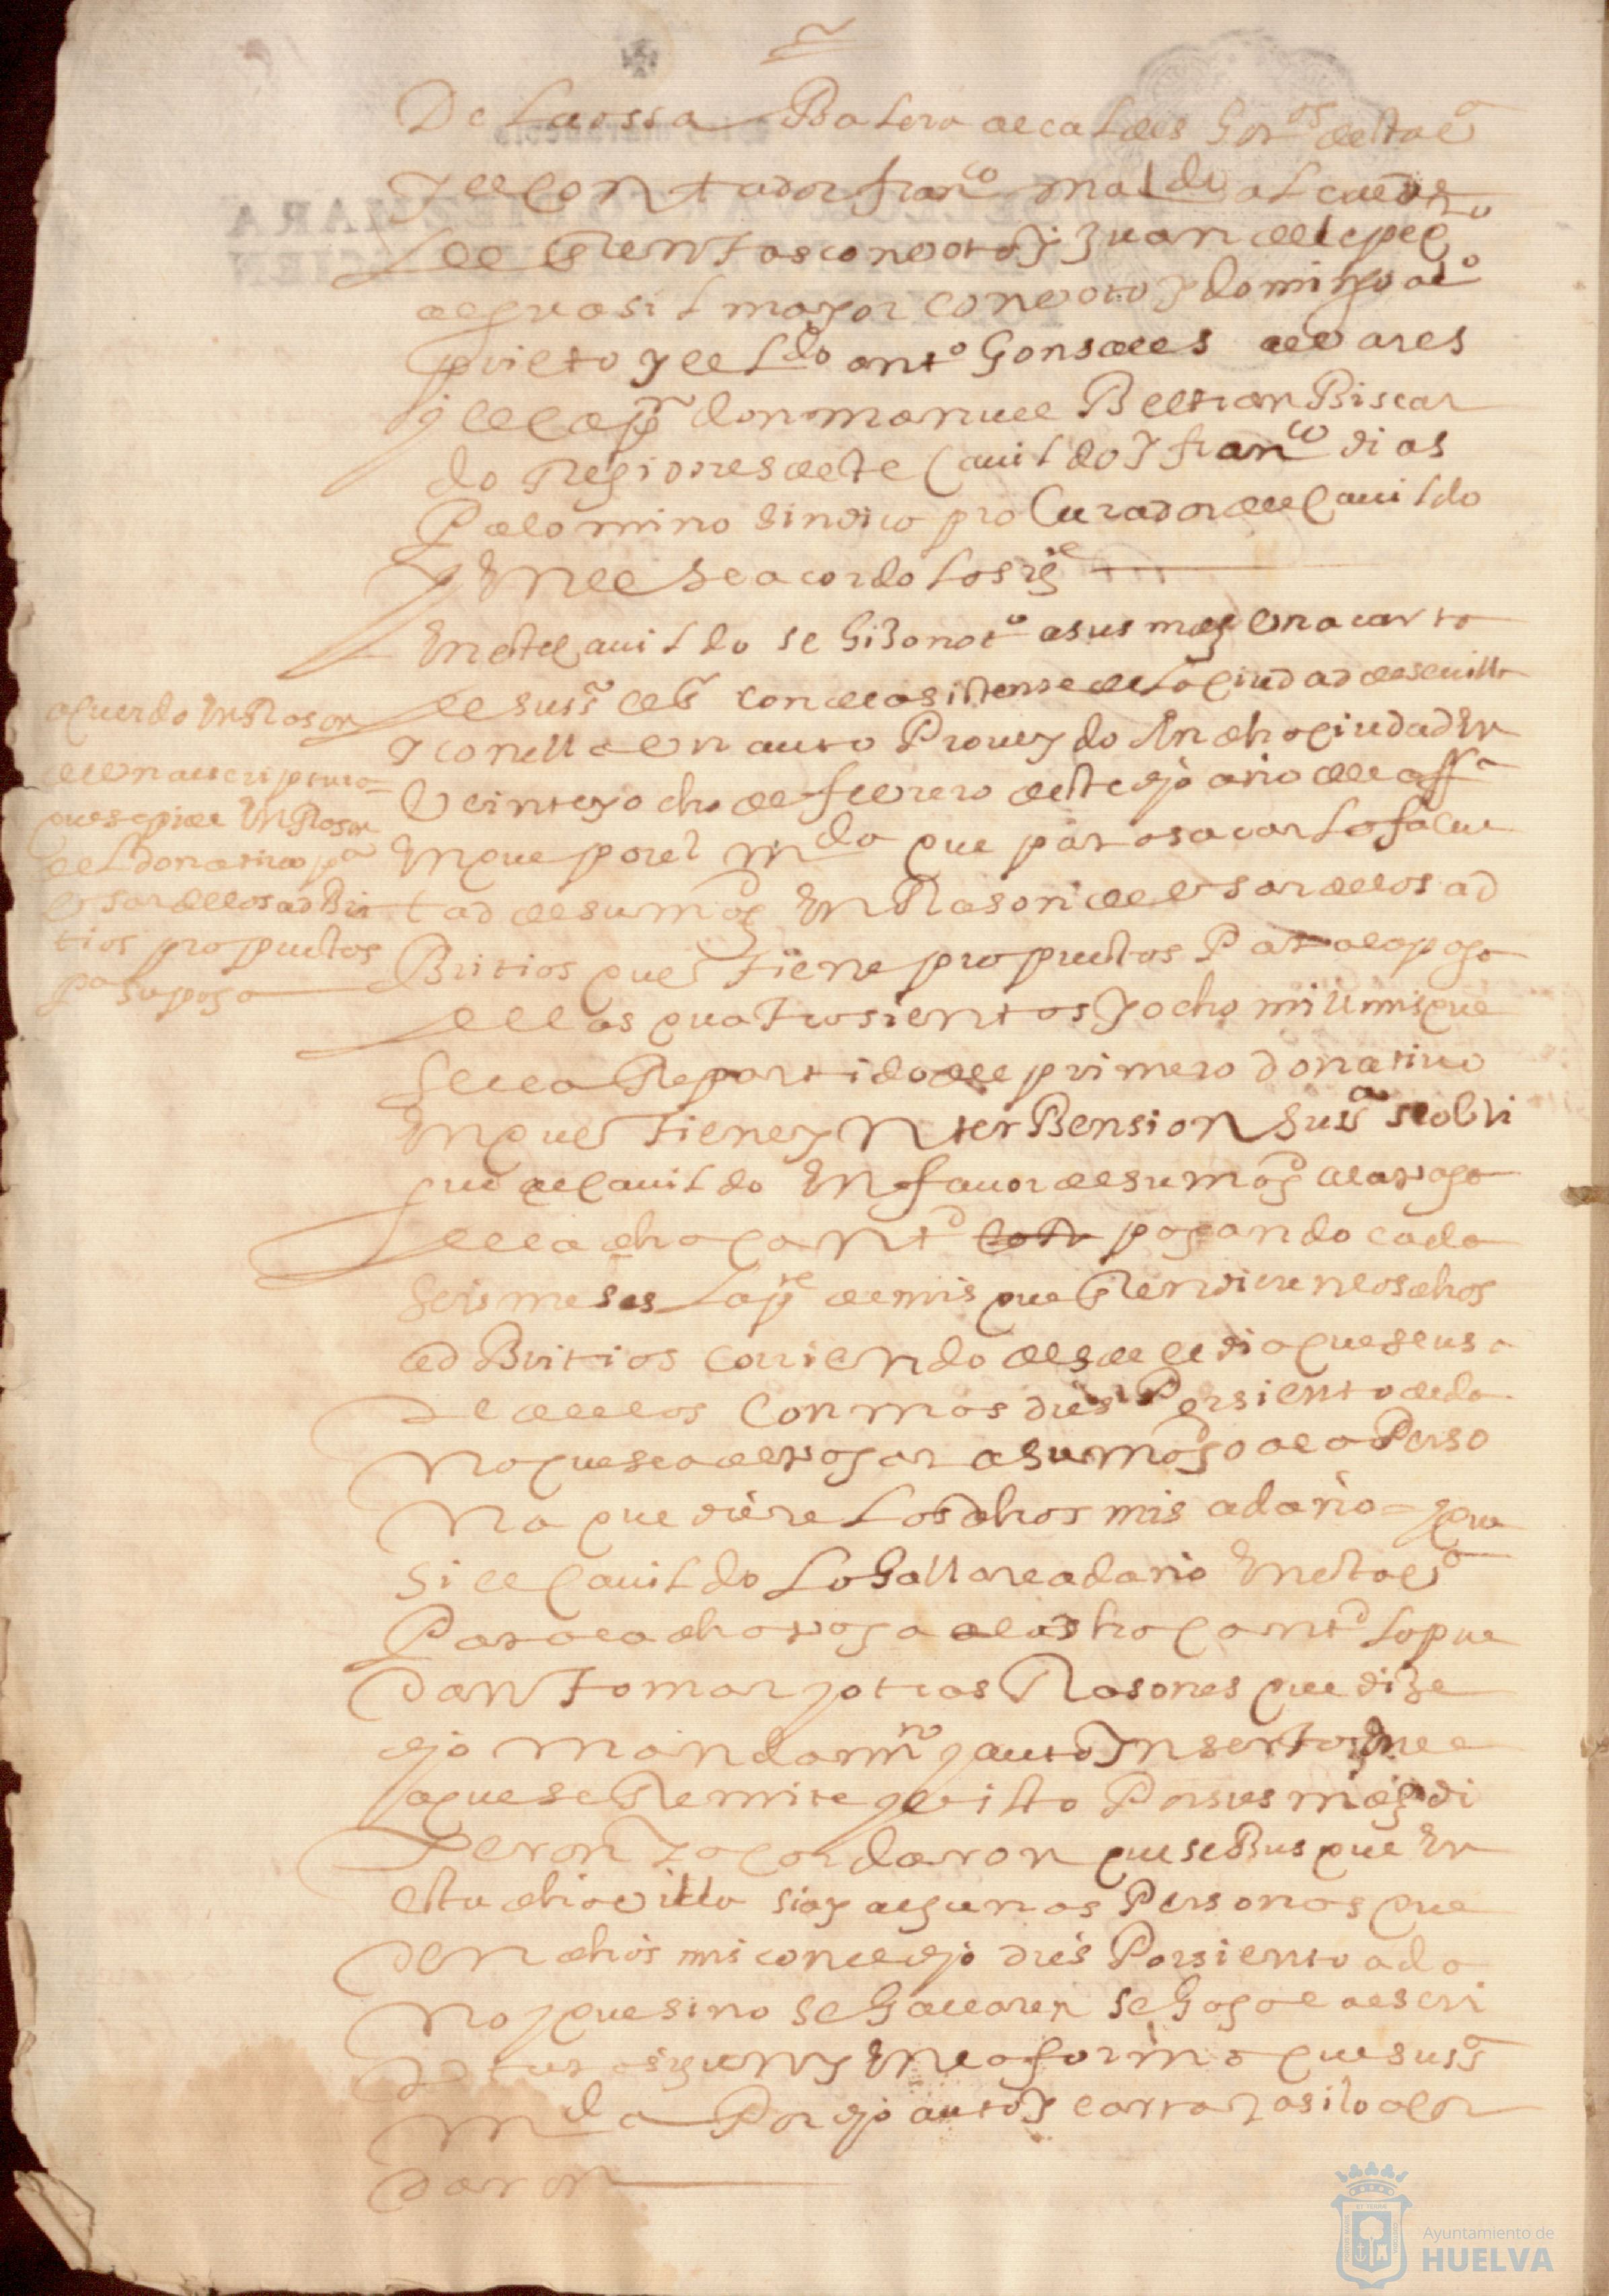 De La ossa Balero alcaldes hordos. desta va
y el Contador franco maldo alcayde
de Rentas con voto y Juan de lepe
alguasil mayor con voto y domingo alo
prieto y el Ldo anto Gonsales
y el cap don manuel Beltran Biscar
do Regidores deste Cauildo y franco dias
Palomino sindico proCurador del Cauildo
y En el Se acordo lo sige
En este Cauildo se hiso noto a sus mds Vna carta
de su sa el sr Conde asistente de la ciudad de seuilla
y con ella Vn auto Proueydo En dha ciudad En
Veinte y ocho de febrero deste dho año de la ffa
En que por el mda que para sacar la facul
tad de su magd En Rason de Vsar de los ad
Bitrios que Tiene propuestos Para la paga
de las quatrosientos y ocho mill mrs que
se le a Repartido del primero donatiuo
En que Tiene ynterBension su ssa se obli
gue el Cauildo En favor de su magd a la paga
de la dha cantd pagando cada
seis meses La pte de mrs que Rindieren los dhos
adBitrios corriendo desde el dia que se usa
re de ellos Con mas dies Por siento de da
ño que sea de pagar a su magd o a la Perso
na que diere Los dhos mrs a daño = y que
si el Cauildo Lo hallare a daño En esta va
Para la dha paga de la dha cantd lo pue
dan Tomar y otras Rasones que dize
dho mandamto y auto Ynserto En el
que se Remite y visto Por sus mds di
jeron y acordaron que se Busque En
esta dha villa si ay algunas Personas que
den dhos mrs con el dho dies Por siento a da
ño y que si no se hallaren se haga la escri
tura sigun y En la forma que su ssa
mda Por dho auto y carta y asi lo acor
daron
acuerdo En Rason
de Vna escriptura
que se pide En Rason
del donatiuo pa
Vsar de los adBi
trios propuestos
pa su paga
Ayuntamiento de
HUELVA